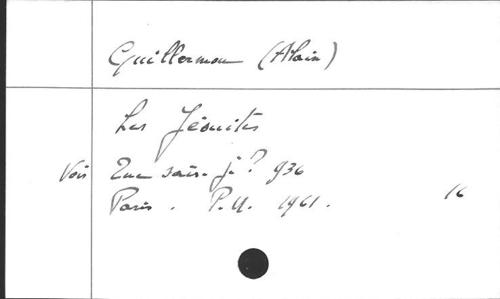 Guillermou (Alain)
Les Jésuites
Voir Que sais-je? 936
Paris. P.U. 1961. 16